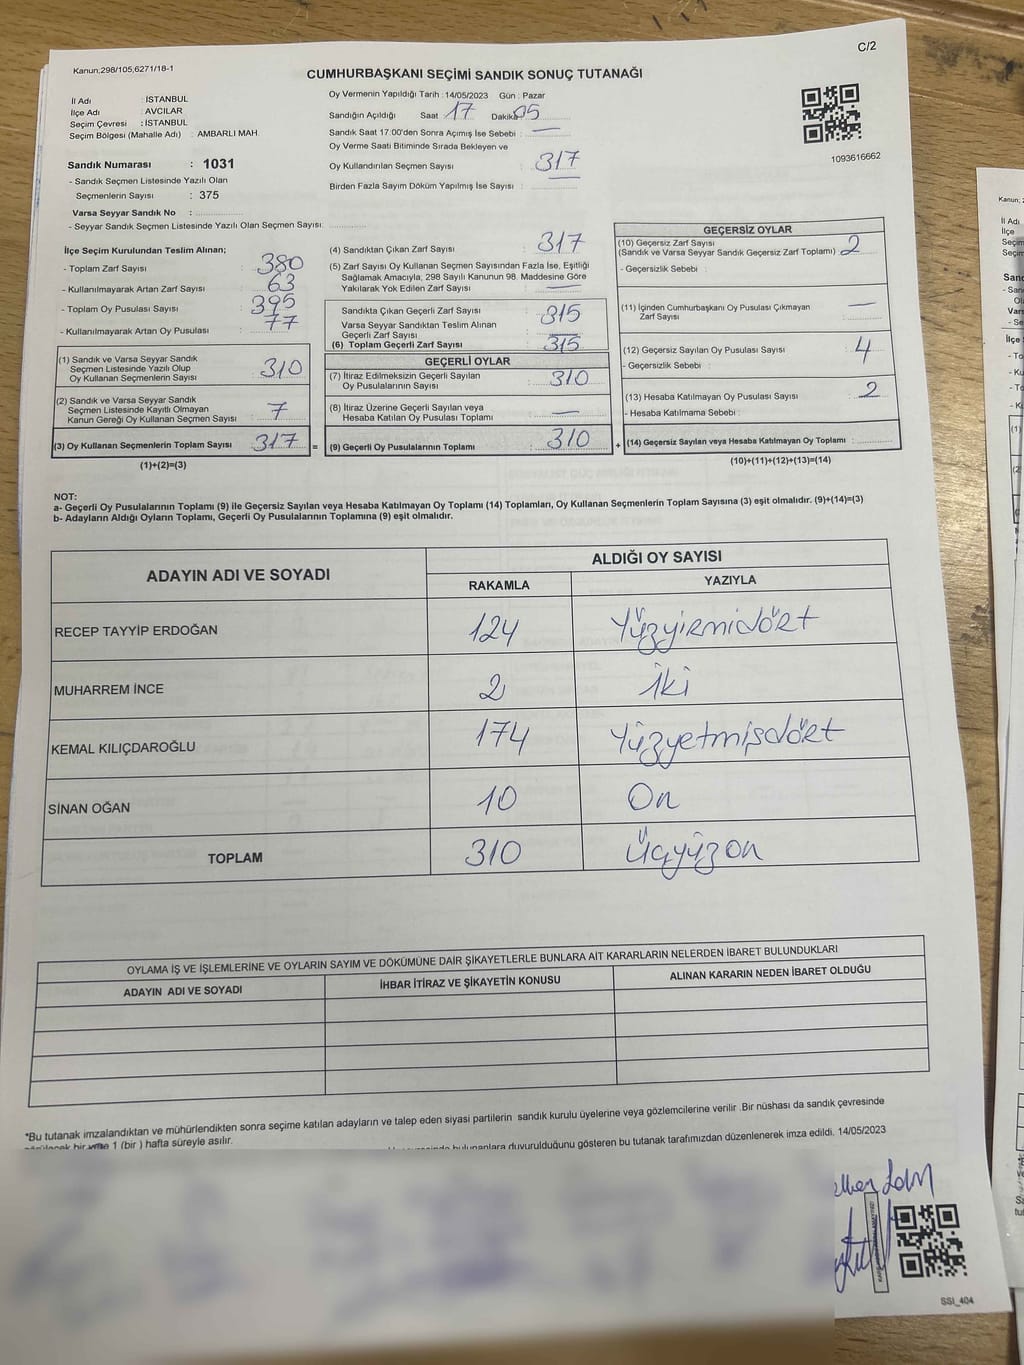 C/2
Kanun;298/105,6271/18-1
CUMHURBAŞKANI SEÇİMİ SANDIK SONUÇ TUTANAĞI
İl Adı : İSTANBUL
İlçe Adı : AVCILAR
Seçim Çevresi : İSTANBUL
Seçim Bölgesi (Mahalle Adı) : AMBARLI MAH.
Sandık Numarası : 1031
- Sandık Seçmen Listesinde Yazılı Olan
Seçmenlerin Sayısı : 375
Varsa Seyyar Sandık No :
- Seyyar Sandık Seçmen Listesinde Yazılı Olan Seçmen Sayısı:
Oy Vermenin Yapıldığı Tarih : 14/05/2023 Gün : Pazar
Sandığın Açıldığı Saat : 17 Dakika 05
Sandık Saat 17:00'den Sonra Açımış İse Sebebi : —
Oy Verme Saati Bitiminde Sırada Bekleyen ve
Oy Kullandırılan Seçmen Sayısı : 317
Birden Fazla Sayım Döküm Yapılmış İse Sayısı : —
1093616662
İlçe Seçim Kurulundan Teslim Alınan;
- Toplam Zarf Sayısı : 380
- Kullanılmayarak Artan Zarf Sayısı : 63
- Toplam Oy Pusulası Sayısı : 395
- Kullanılmayarak Artan Oy Pusulası : 77
(1) Sandık ve Varsa Seyyar Sandık
Seçmen Listesinde Yazılı Olup
Oy Kullanan Seçmenlerin Sayısı : 310
(2) Sandık ve Varsa Seyyar Sandık
Seçmen Listesinde Kayıtlı Olmayan
Kanun Gereği Oy Kullanan Seçmen Sayısı : 7
(3) Oy Kullanan Seçmenlerin Toplam Sayısı : 317 =
(1)+(2)=(3)
(4) Sandıktan Çıkan Zarf Sayısı : 317
(5) Zarf Sayısı Oy Kullanan Seçmen Sayısından Fazla İse, Eşitliği
Sağlamak Amacıyla, 298 Sayılı Kanunun 98. Maddesine Göre
Yakılarak Yok Edilen Zarf Sayısı : —
Sandıkta Çıkan Geçerli Zarf Sayısı : 315
Varsa Seyyar Sandıktan Teslim Alınan
Geçerli Zarf Sayısı : —
(6) Toplam Geçerli Zarf Sayısı : 315
GEÇERLİ OYLAR
(7) İtiraz Edilmeksizin Geçerli Sayılan
Oy Pusulalarının Sayısı : 310
(8) İtiraz Üzerine Geçerli Sayılan veya
Hesaba Katılan Oy Pusulası Toplamı : —
(9) Geçerli Oy Pusulalarının Toplamı : 310 +
GEÇERSİZ OYLAR
(10) Geçersiz Zarf Sayısı
(Sandık ve Varsa Seyyar Sandık Geçersiz Zarf Toplamı) : 2
- Geçersizlik Sebebi :
(11) İçinden Cumhurbaşkanı Oy Pusulası Çıkmayan
Zarf Sayısı : —
(12) Geçersiz Sayılan Oy Pusulası Sayısı : 4
- Geçersizlik Sebebi :
(13) Hesaba Katılmayan Oy Pusulası Sayısı : 2
- Hesaba Katılmama Sebebi :
(14) Geçersiz Sayılan veya Hesaba Katılmayan Oy Toplamı :
(10)+(11)+(12)+(13)=(14)
NOT:
a- Geçerli Oy Pusulalarının Toplamı (9) ile Geçersiz Sayılan veya Hesaba Katılmayan Oy Toplamı (14) Toplamları, Oy Kullanan Seçmenlerin Toplam Sayısına (3) eşit olmalıdır. (9)+(14)=(3)
b- Adayların Aldığı Oyların Toplamı, Geçerli Oy Pusulalarının Toplamına (9) eşit olmalıdır.
ADAYIN ADI VE SOYADI ALDIĞI OY SAYISI
RAKAMLA YAZIYLA
RECEP TAYYİP ERDOĞAN 124 Yüzyirmidört
MUHARREM İNCE 2 İki
KEMAL KILIÇDAROĞLU 174 Yüzyetmişdört
SİNAN OĞAN 10 On
TOPLAM 310 Üçyüzon
OYLAMA İŞ VE İŞLEMLERİNE VE OYLARIN SAYIM VE DÖKÜMÜNE DAİR ŞİKAYETLERLE BUNLARA AİT KARARLARIN NELERDEN İBARET BULUNDUKLARI
ADAYIN ADI VE SOYADI İHBAR İTİRAZ VE ŞİKAYETİN KONUSU ALINAN KARARIN NEDEN İBARET OLDUĞU
*Bu tutanak imzalandıktan ve mühürlendikten sonra seçime katılan adayların ve talep eden siyasi partilerin sandık kurulu üyelerine veya gözlemcilerine verilir .Bir nüshası da sandık çevresinde
1 (bir ) hafta süreyle asılır.
bulunanlara duyurulduğunu gösteren bu tutanak tarafımızdan düzenlenerek imza edildi. 14/05/2023
SSİ_404